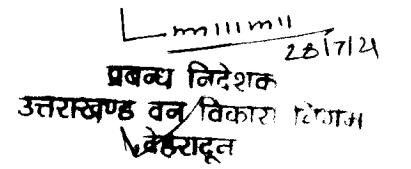 28/7/21
प्रबन्ध निदेशक
उत्तराखण्ड वन विकास निगम
देहरादून